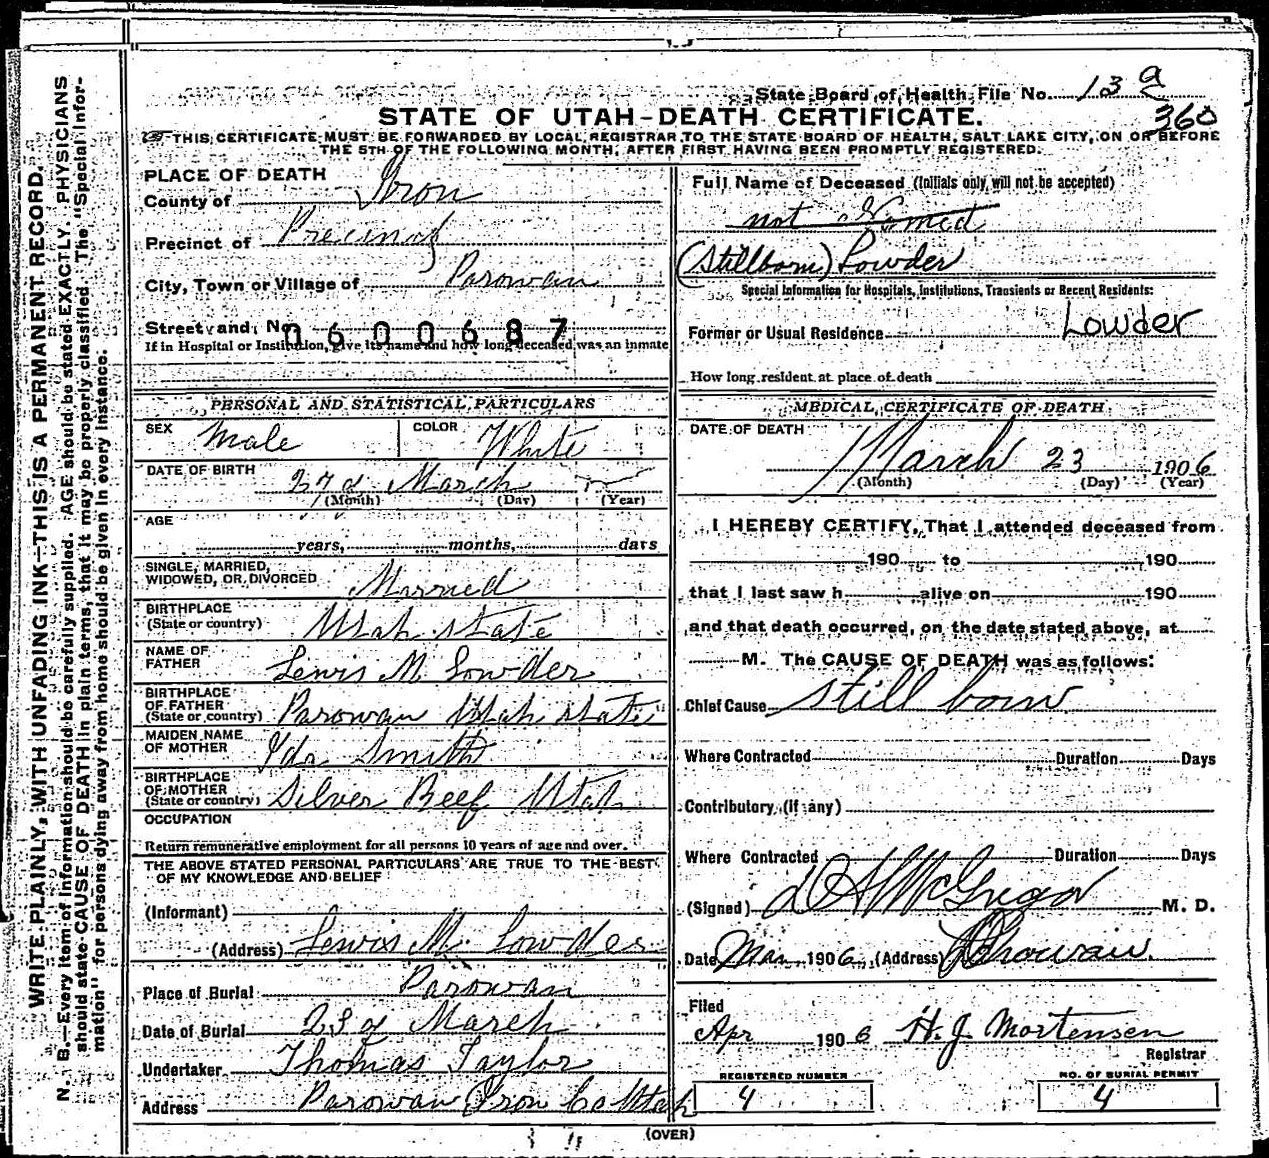 WRITE PLAINLY, WITH UNFADING INK—THIS IS A PERMANENT RECORD.
N. B.—Every item of information should be carefully supplied. AGE should be stated EXACTLY. PHYSICIANS
should state CAUSE OF DEATH in plain terms, that it may be properly classified. The "Special Infor-
mation" for persons dying away from home should be given in every instance.
State Board of Health File No. 13 a
360
STATE OF UTAH-DEATH CERTIFICATE.
THIS CERTIFICATE MUST BE FORWARDED BY LOCAL REGISTRAR TO THE STATE BOARD OF HEALTH, SALT LAKE CITY, ON OR BEFORE
THE 5TH OF THE FOLLOWING MONTH, AFTER FIRST HAVING BEEN PROMPTLY REGISTERED.
PLACE OF DEATH
County of Iron
Precinct of Precinct
City, Town or Village of Parowan
Street and No.
0600687
If in Hospital or Institution, give its name and how long deceased was an inmate
PERSONAL AND STATISTICAL PARTICULARS
SEX Male COLOR White
DATE OF BIRTH March
(Month) (Day) (Year)
AGE
years, months, days
SINGLE, MARRIED,
WIDOWED, OR DIVORCED Married
BIRTHPLACE
(State or country) Utah State
NAME OF
FATHER Lewis M. Lowder
BIRTHPLACE
OF FATHER
(State or country) Parowan Utah State
MAIDEN NAME
OF MOTHER Ida Smith
BIRTHPLACE
OF MOTHER
(State or country) Silver Reef Utah
OCCUPATION
Return remunerative employment for all persons 10 years of age and over.
THE ABOVE STATED PERSONAL PARTICULARS ARE TRUE TO THE BEST
OF MY KNOWLEDGE AND BELIEF
(Informant)
(Address) Lewis M. Lowder
Place of Burial Parowan
Date of Burial 23d March
Undertaker Thomas Taylor
Address Parowan Iron Co Utah
Full Name of Deceased (Initials only will not be accepted)
not Named
(Stillborn) Lowder
Special Information for Hospitals, Institutions, Transients or Recent Residents:
Former or Usual Residence Lowder
How long resident at place of death
MEDICAL CERTIFICATE OF DEATH
DATE OF DEATH
March 23 1906
(Month) (Day) (Year)
I HEREBY CERTIFY, That I attended deceased from
190 to 190
that I last saw h alive on 190
and that death occurred, on the date stated above, at
M. The CAUSE OF DEATH was as follows:
Chief Cause still born
Where Contracted Duration Days
Contributory (if any)
Where Contracted Duration Days
(Signed) McGregor M. D.
Date Mar 1906 (Address) Parowan.
Filed
Apr 1906 H. J. Mortensen
Registrar
REGISTERED NUMBER
4
NO. OF BURIAL PERMIT
4
(OVER)